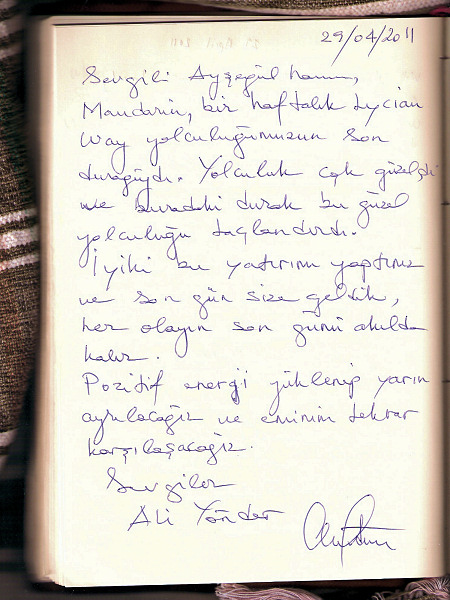 29/04/2011
Sevgili Ayşegül hanım,
Mandarin, bir haftalık Lycian
Way yolculuğumuzun son
durağıydı. Yolculuk çok güzeldi
ve buradaki durak bu güzel
yolculuğu taçlandırdı.
İyiki bu yatırımı yaptınız
ve son gün size geldik,
her olayın son günü akılda
kalır.
Pozitif enerji yüklenip yarın
ayrılacağız ve eminim tekrar
karşılaşacağız.
Sevgiler
Ali Yönder